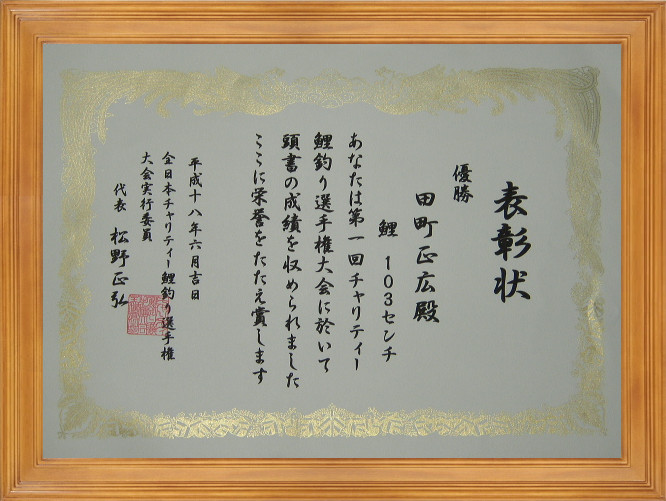 表彰状
優勝
田町正広殿
鯉 103センチ
あなたは第一回チャリティー
鯉釣り選手権大会に於いて
頭書の成績を収められました
ここに栄誉をたたえ賞します
平成十八年六月吉日
全日本チャリティー鯉釣り選手権
大会実行委員
代表 松野正弘